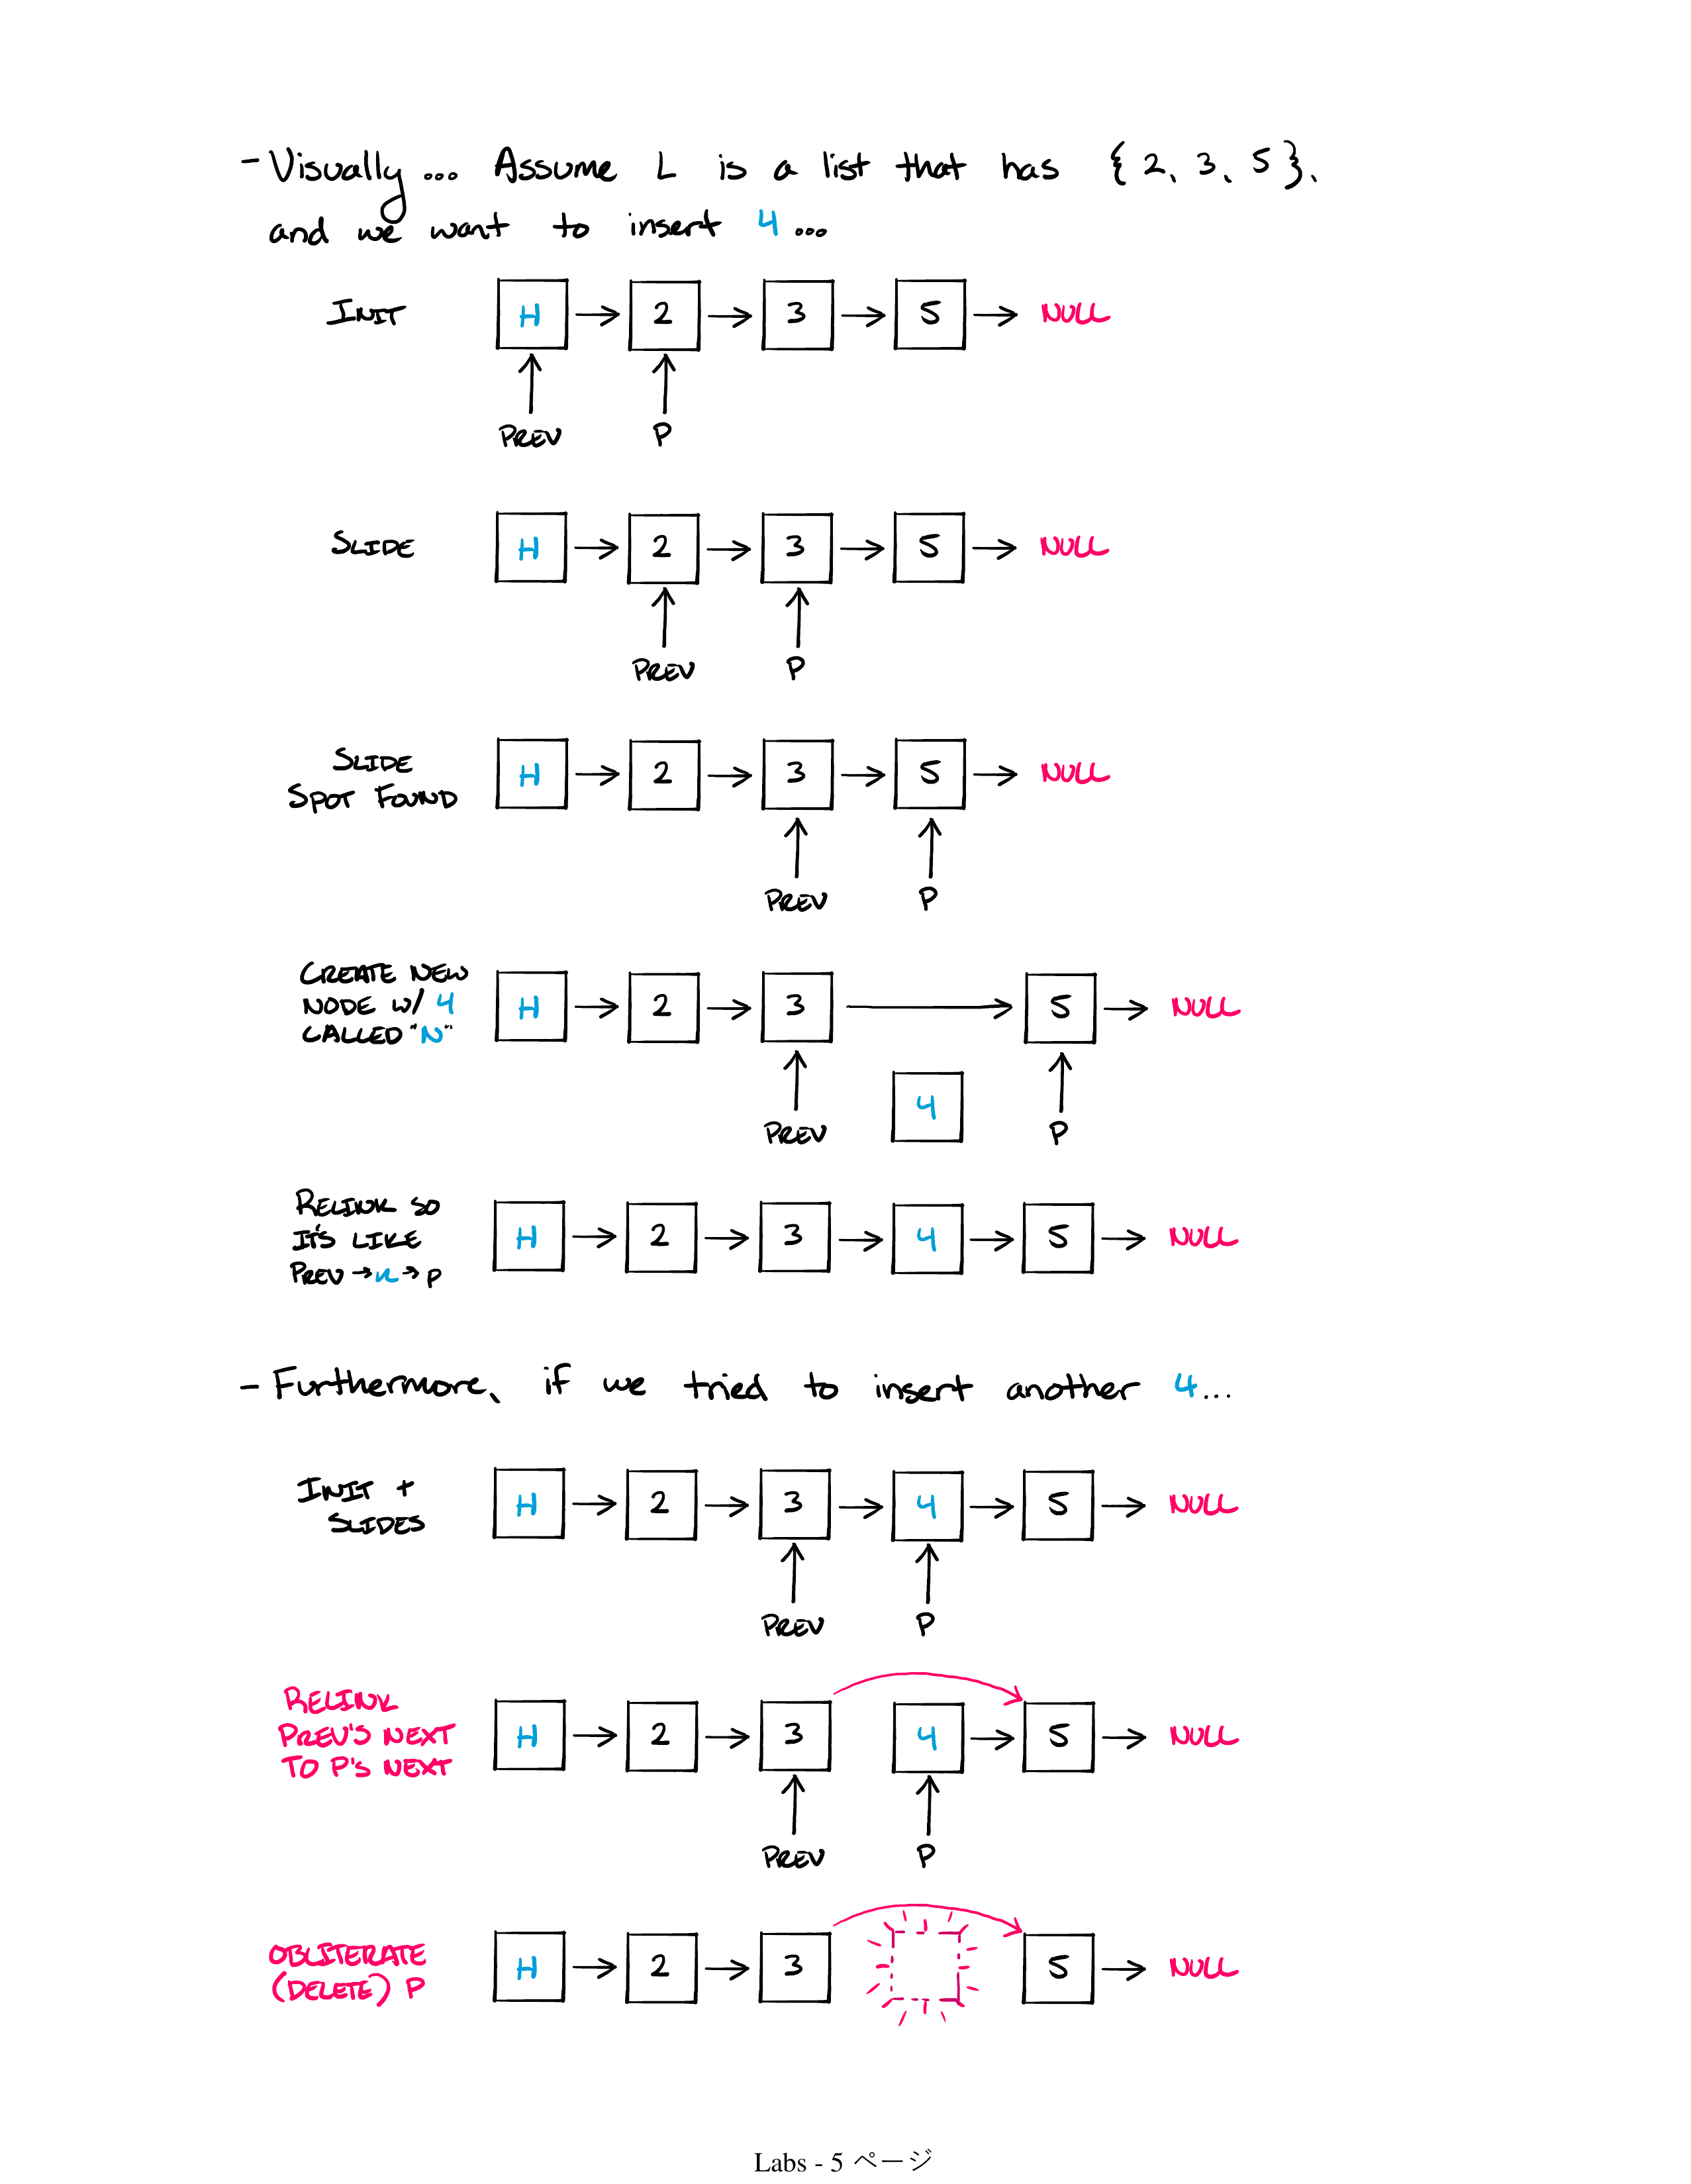 - Visually ... Assume L is a list that has { 2, 3, 5 },
and we want to insert 4 ...
INIT H → 2 → 3 → 5 → NULL
PREV P
SLIDE H → 2 → 3 → 5 → NULL
PREV P
SLIDE
SPOT FOUND H → 2 → 3 → 5 → NULL
PREV P
CREATE NEW
NODE W/ 4
CALLED "N"
H → 2 → 3 → 5 → NULL
4
PREV P
RELINK SO
IT'S LIKE
PREV → N → P
H → 2 → 3 → 4 → 5 → NULL
- Furthermore, if we tried to insert another 4...
INIT +
SLIDES
H → 2 → 3 → 4 → 5 → NULL
PREV P
RELINK
PREV'S NEXT
TO P'S NEXT
H → 2 → 3 4 → 5 → NULL
PREV P
OBLITERATE
(DELETE) P
H → 2 → 3 5 → NULL
Labs - 5 ページ